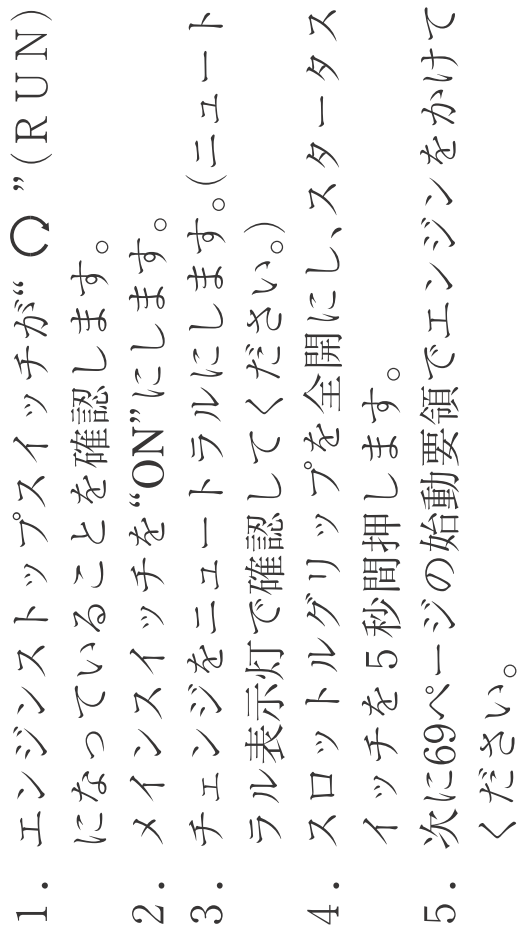 1. エンジンストップスイッチが“ ”(RUN)
になっていることを確認します。
2. メインスイッチを“ON”にします。
3. チェンジをニュートラルにします。(ニュート
ラル表示灯で確認してください。)
4. スロットルグリップを全開にし、スタータス
イッチを5秒間押します。
5. 次に69ページの始動要領でエンジンをかけて
ください。